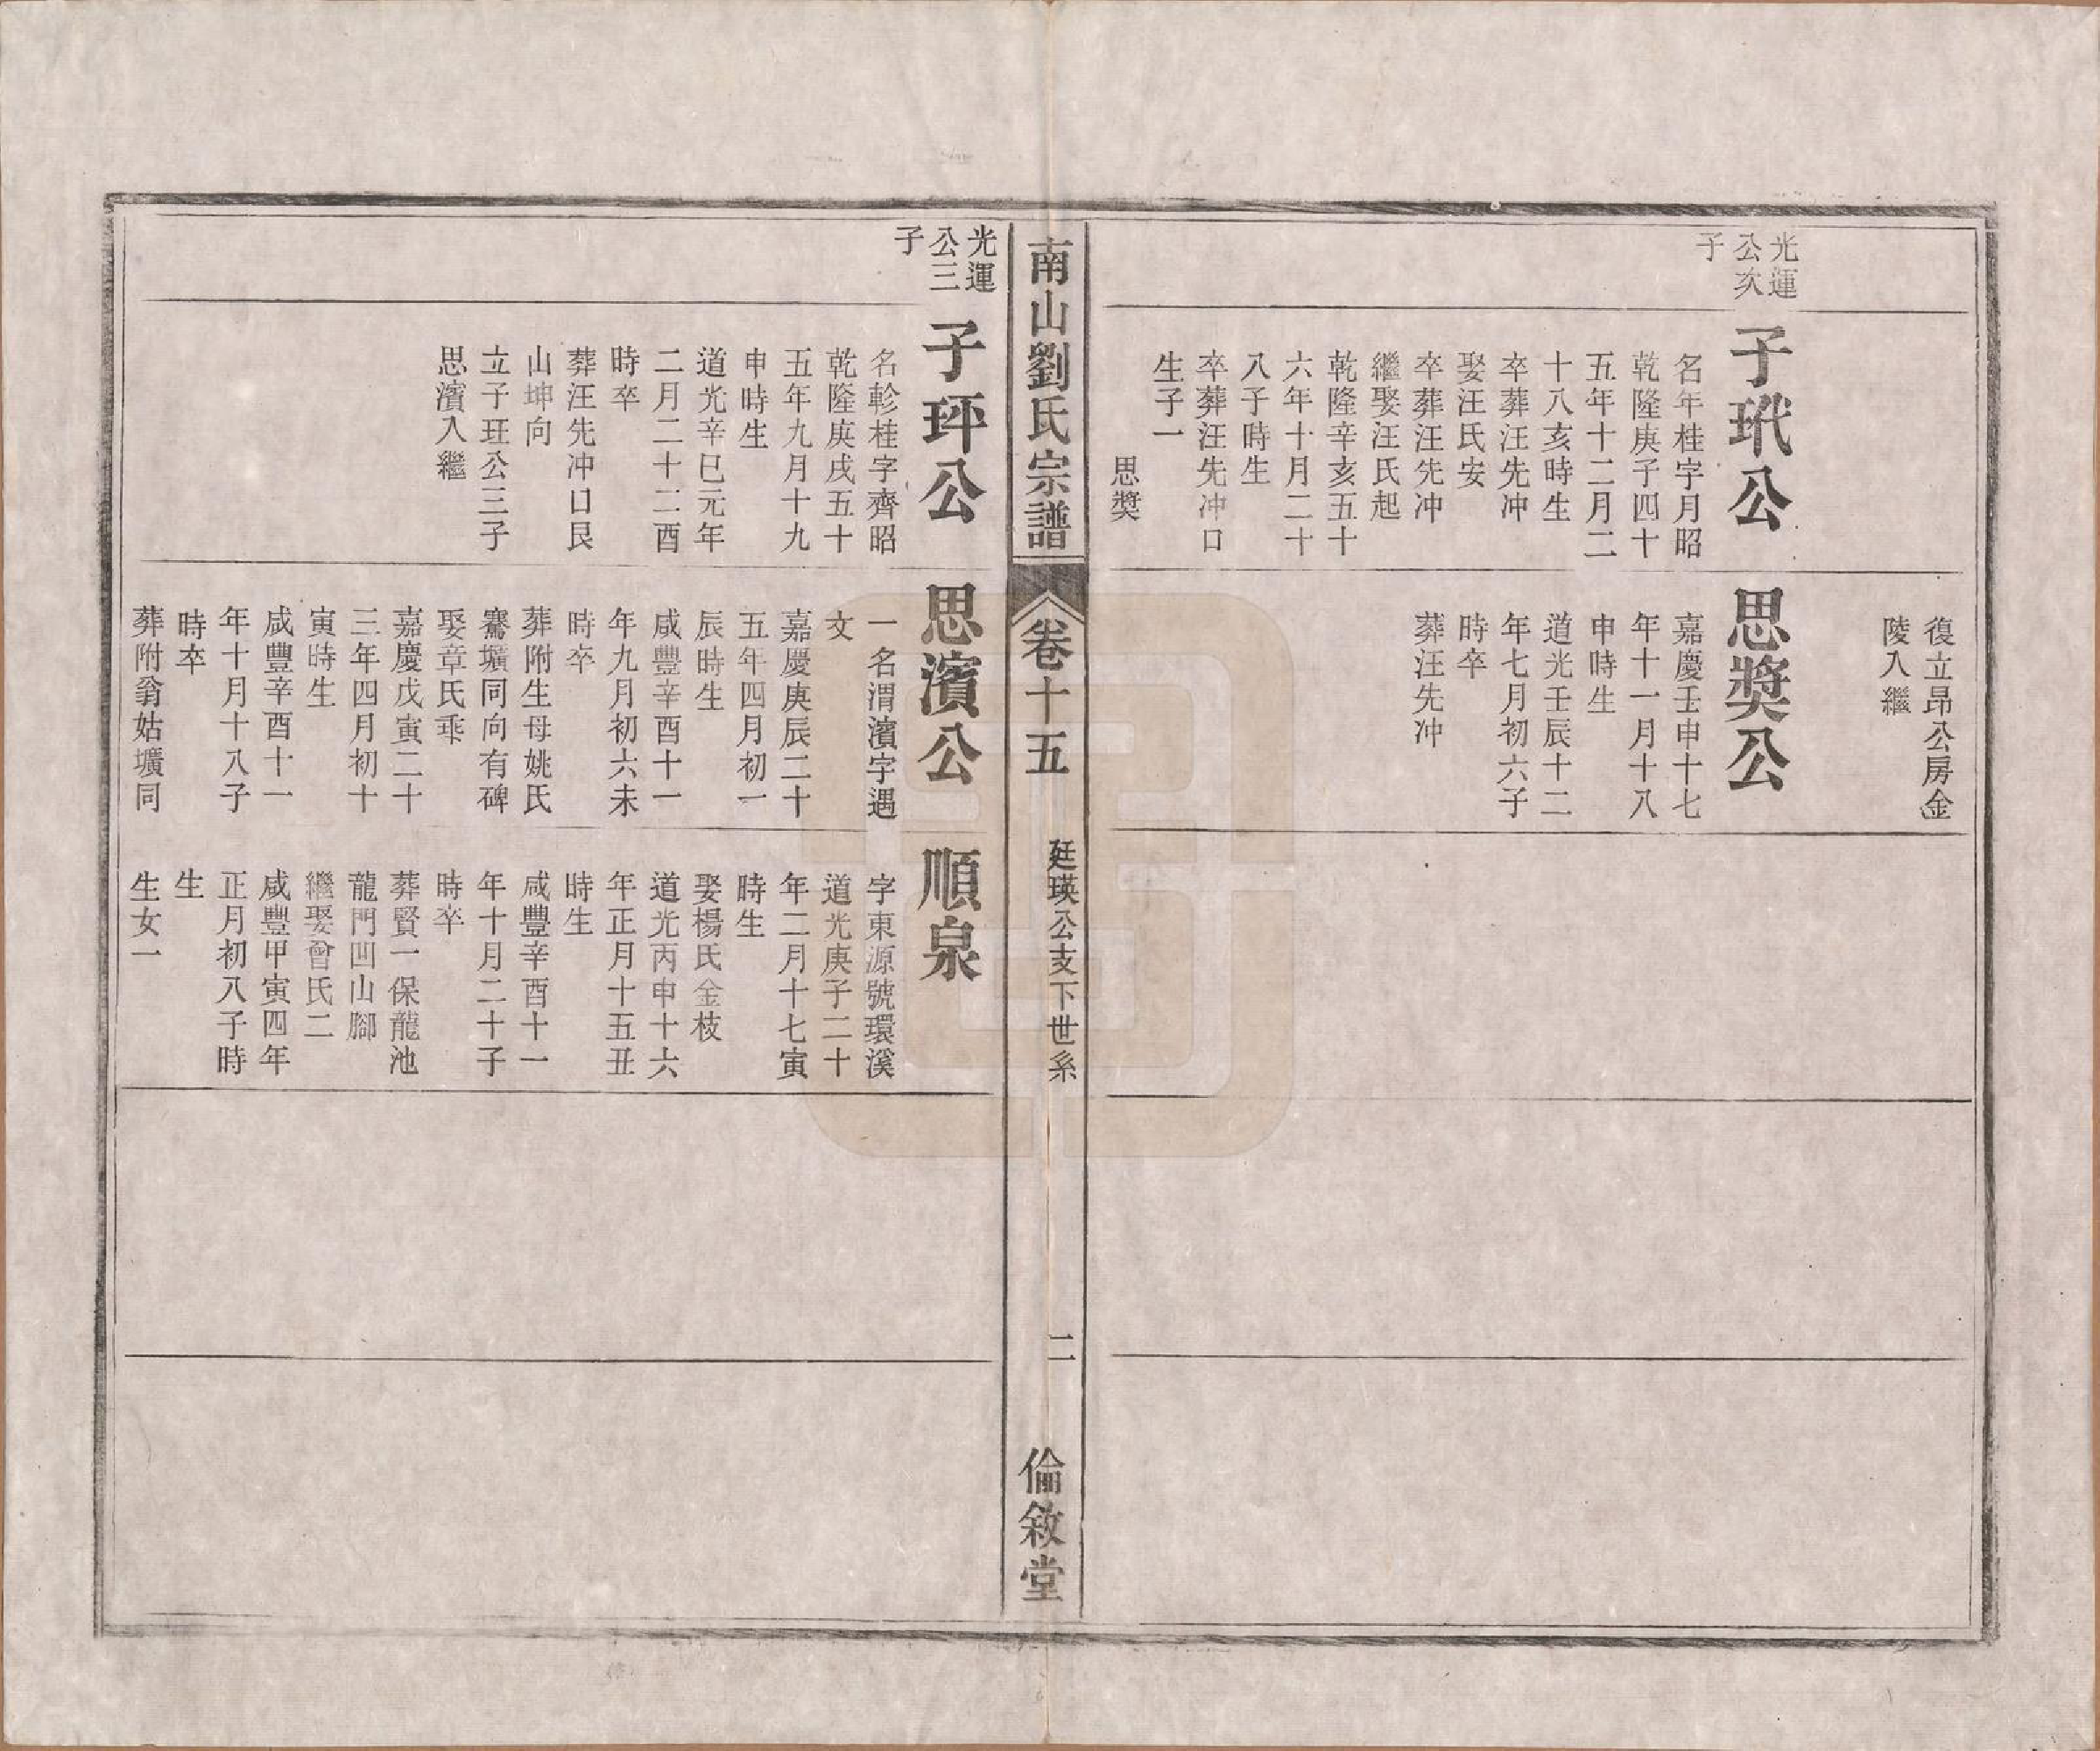 復立昂公房金
陵入繼
光運
公次
子
子玳公
名年桂字月昭
乾隆庚子四十
五年十二月二
十八亥時生
卒葬汪先冲
娶汪氏安
卒葬汪先冲
繼娶汪氏起
乾隆辛亥五十
六年十月二十
八子時生
卒葬汪先冲口
生子一
思獎
思獎公
嘉慶壬申十七
年十一月十八
申時生
道光壬辰十二
年七月初六子
時卒
葬汪先冲
南山劉氏宗譜
卷十五
廷瑛公支下世系
二
倫敘堂
光運
公三
子
子玶公
名軫桂字齊昭
乾隆庚戌五十
五年九月十九
申時生
道光辛巳元年
二月二十二酉
時卒
葬汪先冲口艮
山坤向
立子玨公三子
思濱入繼
思濱公
一名渭濱字遇
文
嘉慶庚辰二十
五年四月初一
辰時生
咸豐辛酉十一
年九月初六未
時卒
葬附生母姚氏
騫壙同向有碑
娶章氏乖
嘉慶戊寅二十
三年四月初十
寅時生
咸豐辛酉十一
年十月十八子
時卒
葬附翁姑壙同
順泉
字東源號環溪
道光庚子二十
年二月十七寅
時生
娶楊氏金枝
道光丙申十六
年正月十五丑
時生
咸豐辛酉十一
年十月二十子
時卒
葬賢一保龍池
龍門凹山腳
繼娶曾氏二
咸豐甲寅四年
正月初八子時
生
生女一